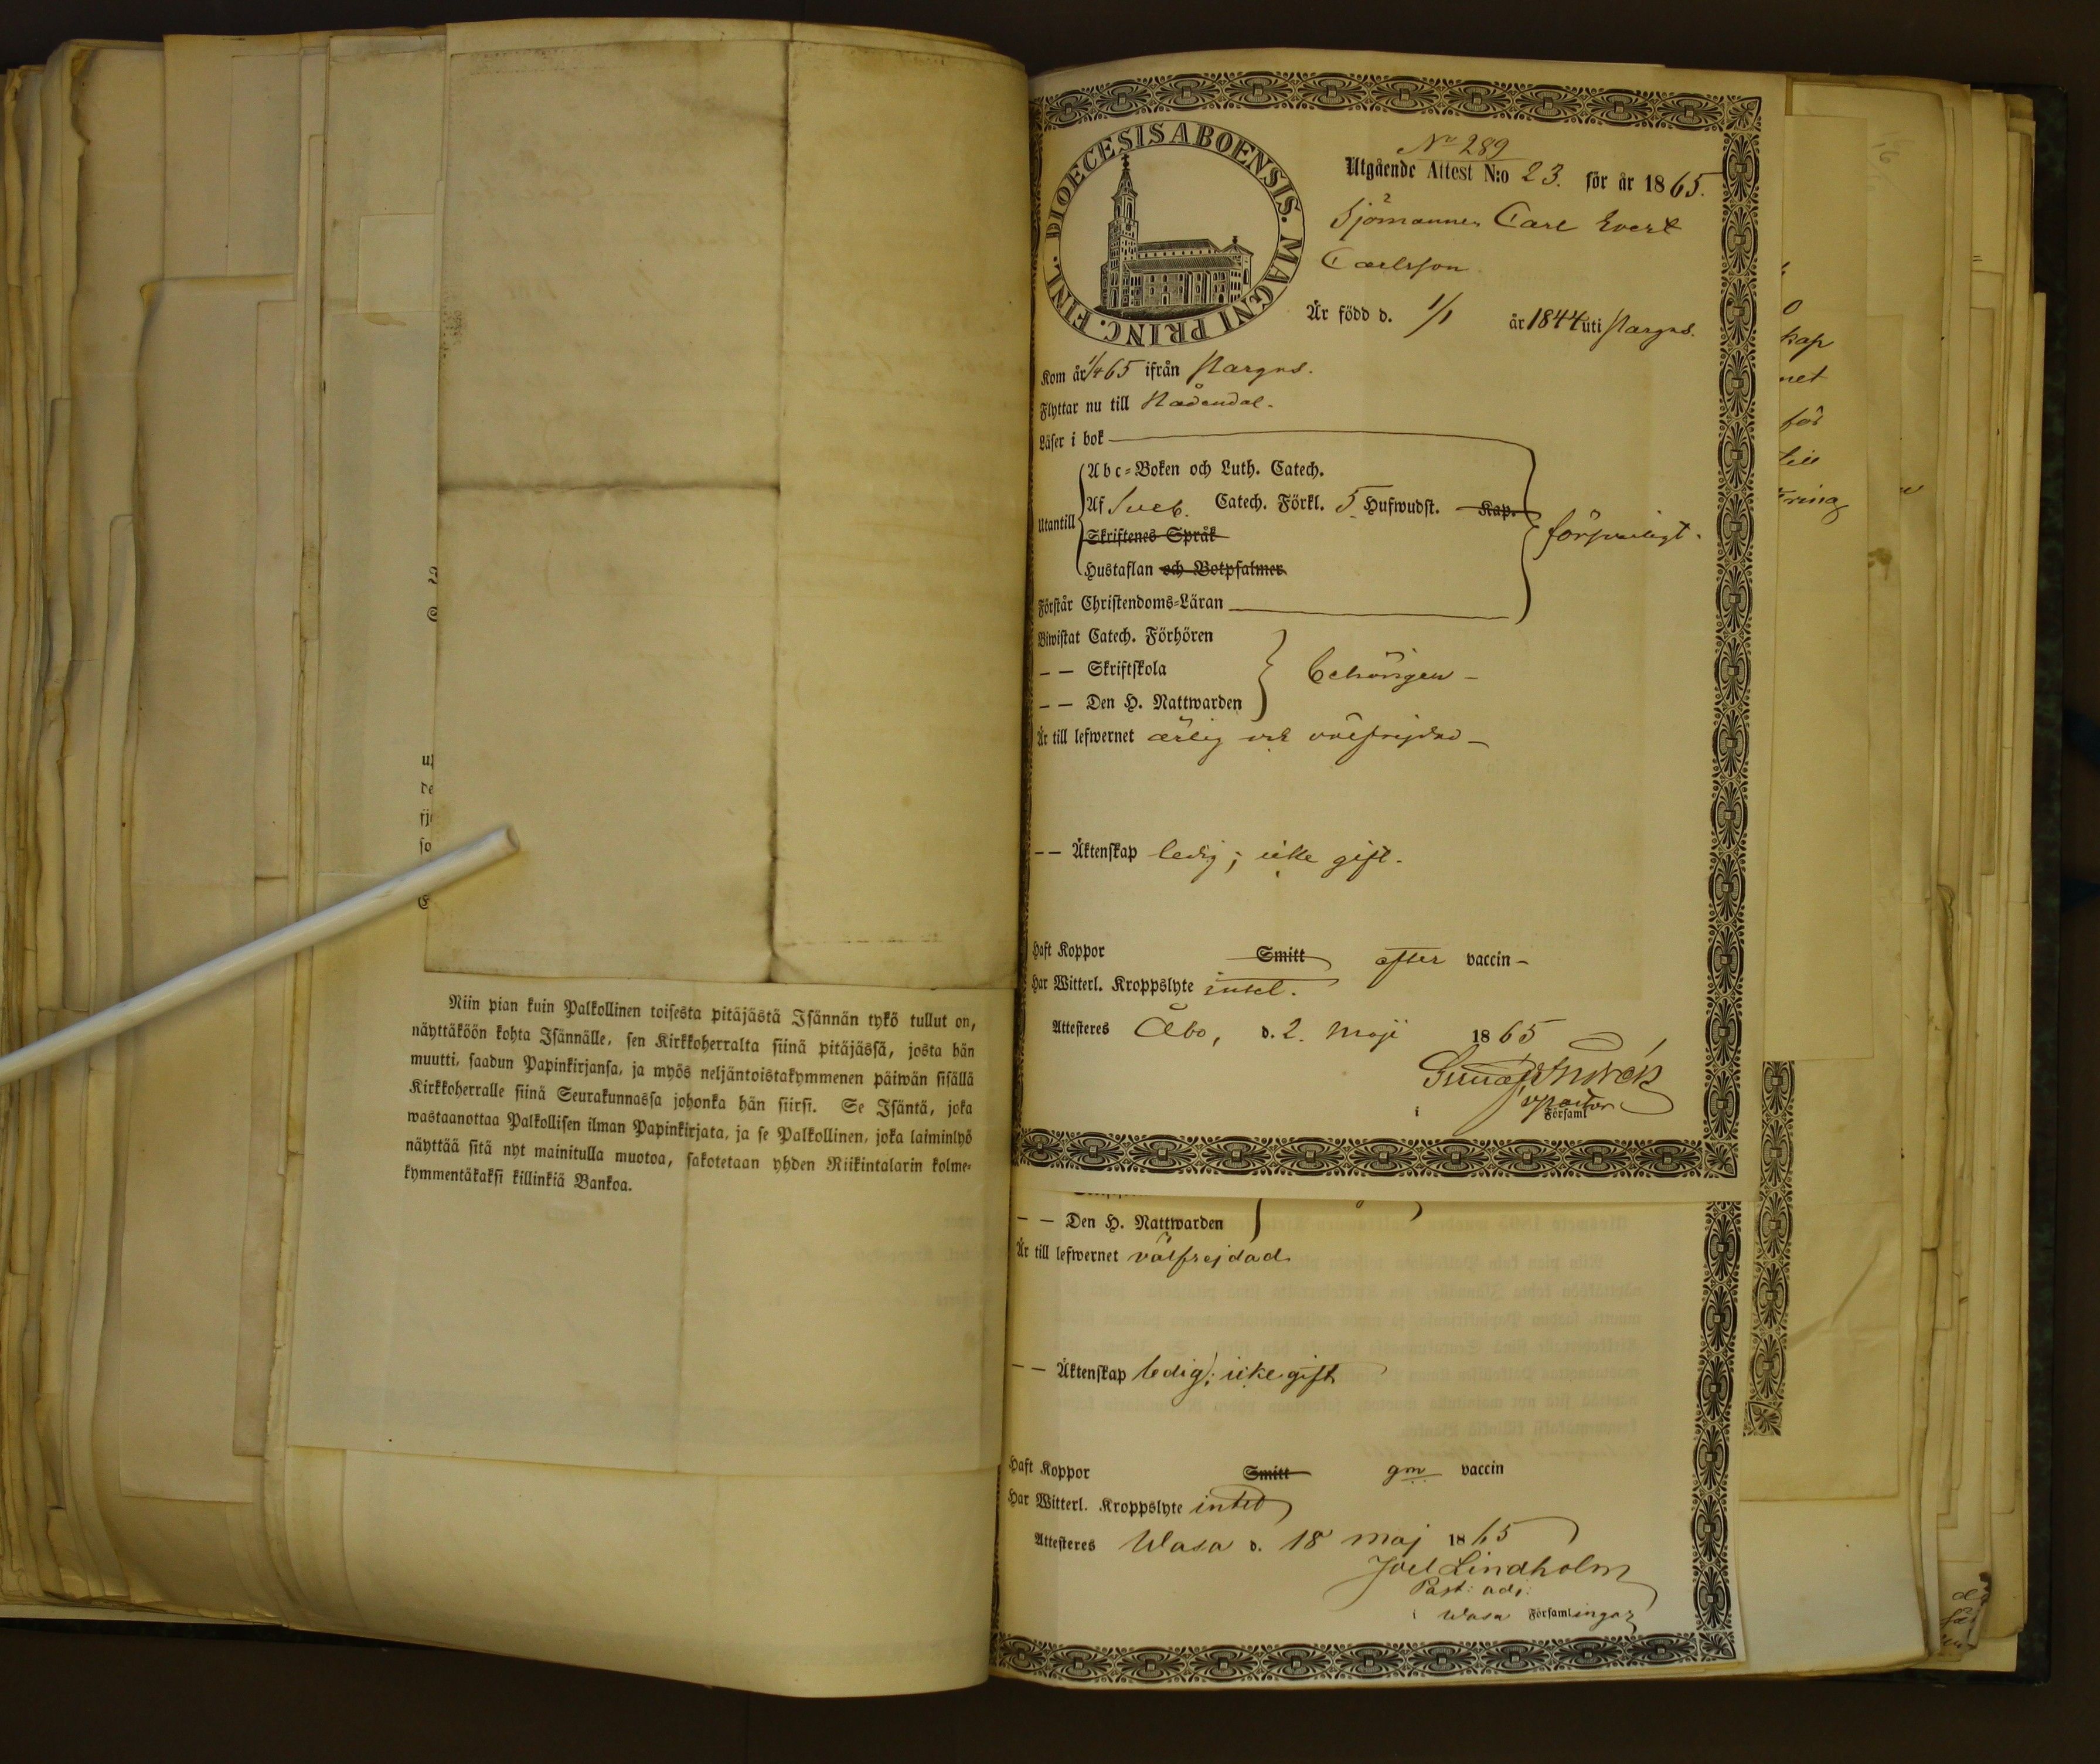 Niin pian kuin Palkollinen toisesta pitäjästä Isännän tykö tullut on,
näyttäköön kohta Isännälle, sen Kirkkoherralta siinä pitäjässä, josta hän
muutti, saadun Papinkirjansa, ja myös neljäntoistakymmenen päiwän sisällä
Kirkkoherralle siinä Seurakunnassa johonka hän siirsi. Se Isäntä, joka
wastaanottaa Palkollisen ilman Papinkirjata, ja se Palkollinen, joka laiminlyö
näyttää sitä nyt mainitulla muotoa, sakotetaan yhden Riikintalarin kolme-
kymmentäkaksi killinkiä Bankoa.
DIOECESIS ABOENSIS. MAGNI PRINC. FINL.
No 289
Utgående Attest N:o 23. för år 1865.
Sjömannen Carl Evert
Carlsson
Är född d. 1/1 år 1844 uti Nargus.
Kom år 1/4 65 ifrån Nargus.
Flyttar nu till Nådendal.
Läser i bok
Abc-Boken och Luth. Catech.
Utantill Af Sveb. Catech. Förkl. 5 Hufwudst. Kap.
Skriftenes Språk
försvarligt.
Hustaflan och Botpsalmer
Förstår Christendoms-Läran
Biwistat Catech. Förhören
– – Skriftskola behörigen –
– – Den H. Nattwarden
Är till lefwernet ärlig och välfrejdad –
– – Äktenskap ledig; icke gift.
Haft Koppor Smitt efter vaccin –
Har Witterl. Kroppslyte intet.
Attesteres Åbo, d. 2. Maji 1865
i Församl
– – Den H. Nattwarden
Är till lefwernet välfrejdad
– – Äktenskap ledig; icke gift
Haft Koppor Smitt gm vaccin
Har Witterl. Kroppslyte intet
Attesteres Wasa d. 18 maj 1865
Joel Lindholm
Past: adj:
i Wasa Församlingar